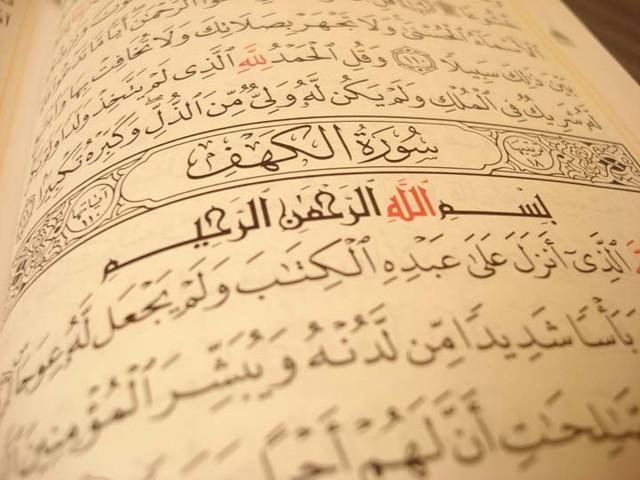 ٱلْأَسْمَآءُ ٱلْحُسْنَىٰ وَلَا تَجْهَرْ بِصَلَاتِكَ وَلَا تُخَافِتْ بِهَا
بَيْنَ ذَٰلِكَ سَبِيلًا ۝١١٠ وَقُلِ ٱلْحَمْدُ لِلَّهِ ٱلَّذِى لَمْ يَتَّخِذْ وَلَدًا وَلَمْ
لَّهُۥ شَرِيكٌ فِى ٱلْمُلْكِ وَلَمْ يَكُن لَّهُۥ وَلِىٌّ مِّنَ ٱلذُّلِّ وَكَبِّرْهُ تَكْبِيرًا
سُورَةُ الكَهْفِ
بِسْمِ ٱللَّهِ ٱلرَّحْمَٰنِ ٱلرَّحِيمِ
ٱلَّذِىٓ أَنزَلَ عَلَىٰ عَبْدِهِ ٱلْكِتَٰبَ وَلَمْ يَجْعَل لَّهُۥ عِوَجًا
بَأْسًا شَدِيدًا مِّن لَّدُنْهُ وَيُبَشِّرَ ٱلْمُؤْمِنِينَ
أَنَّ لَهُمْ أَجْرًا